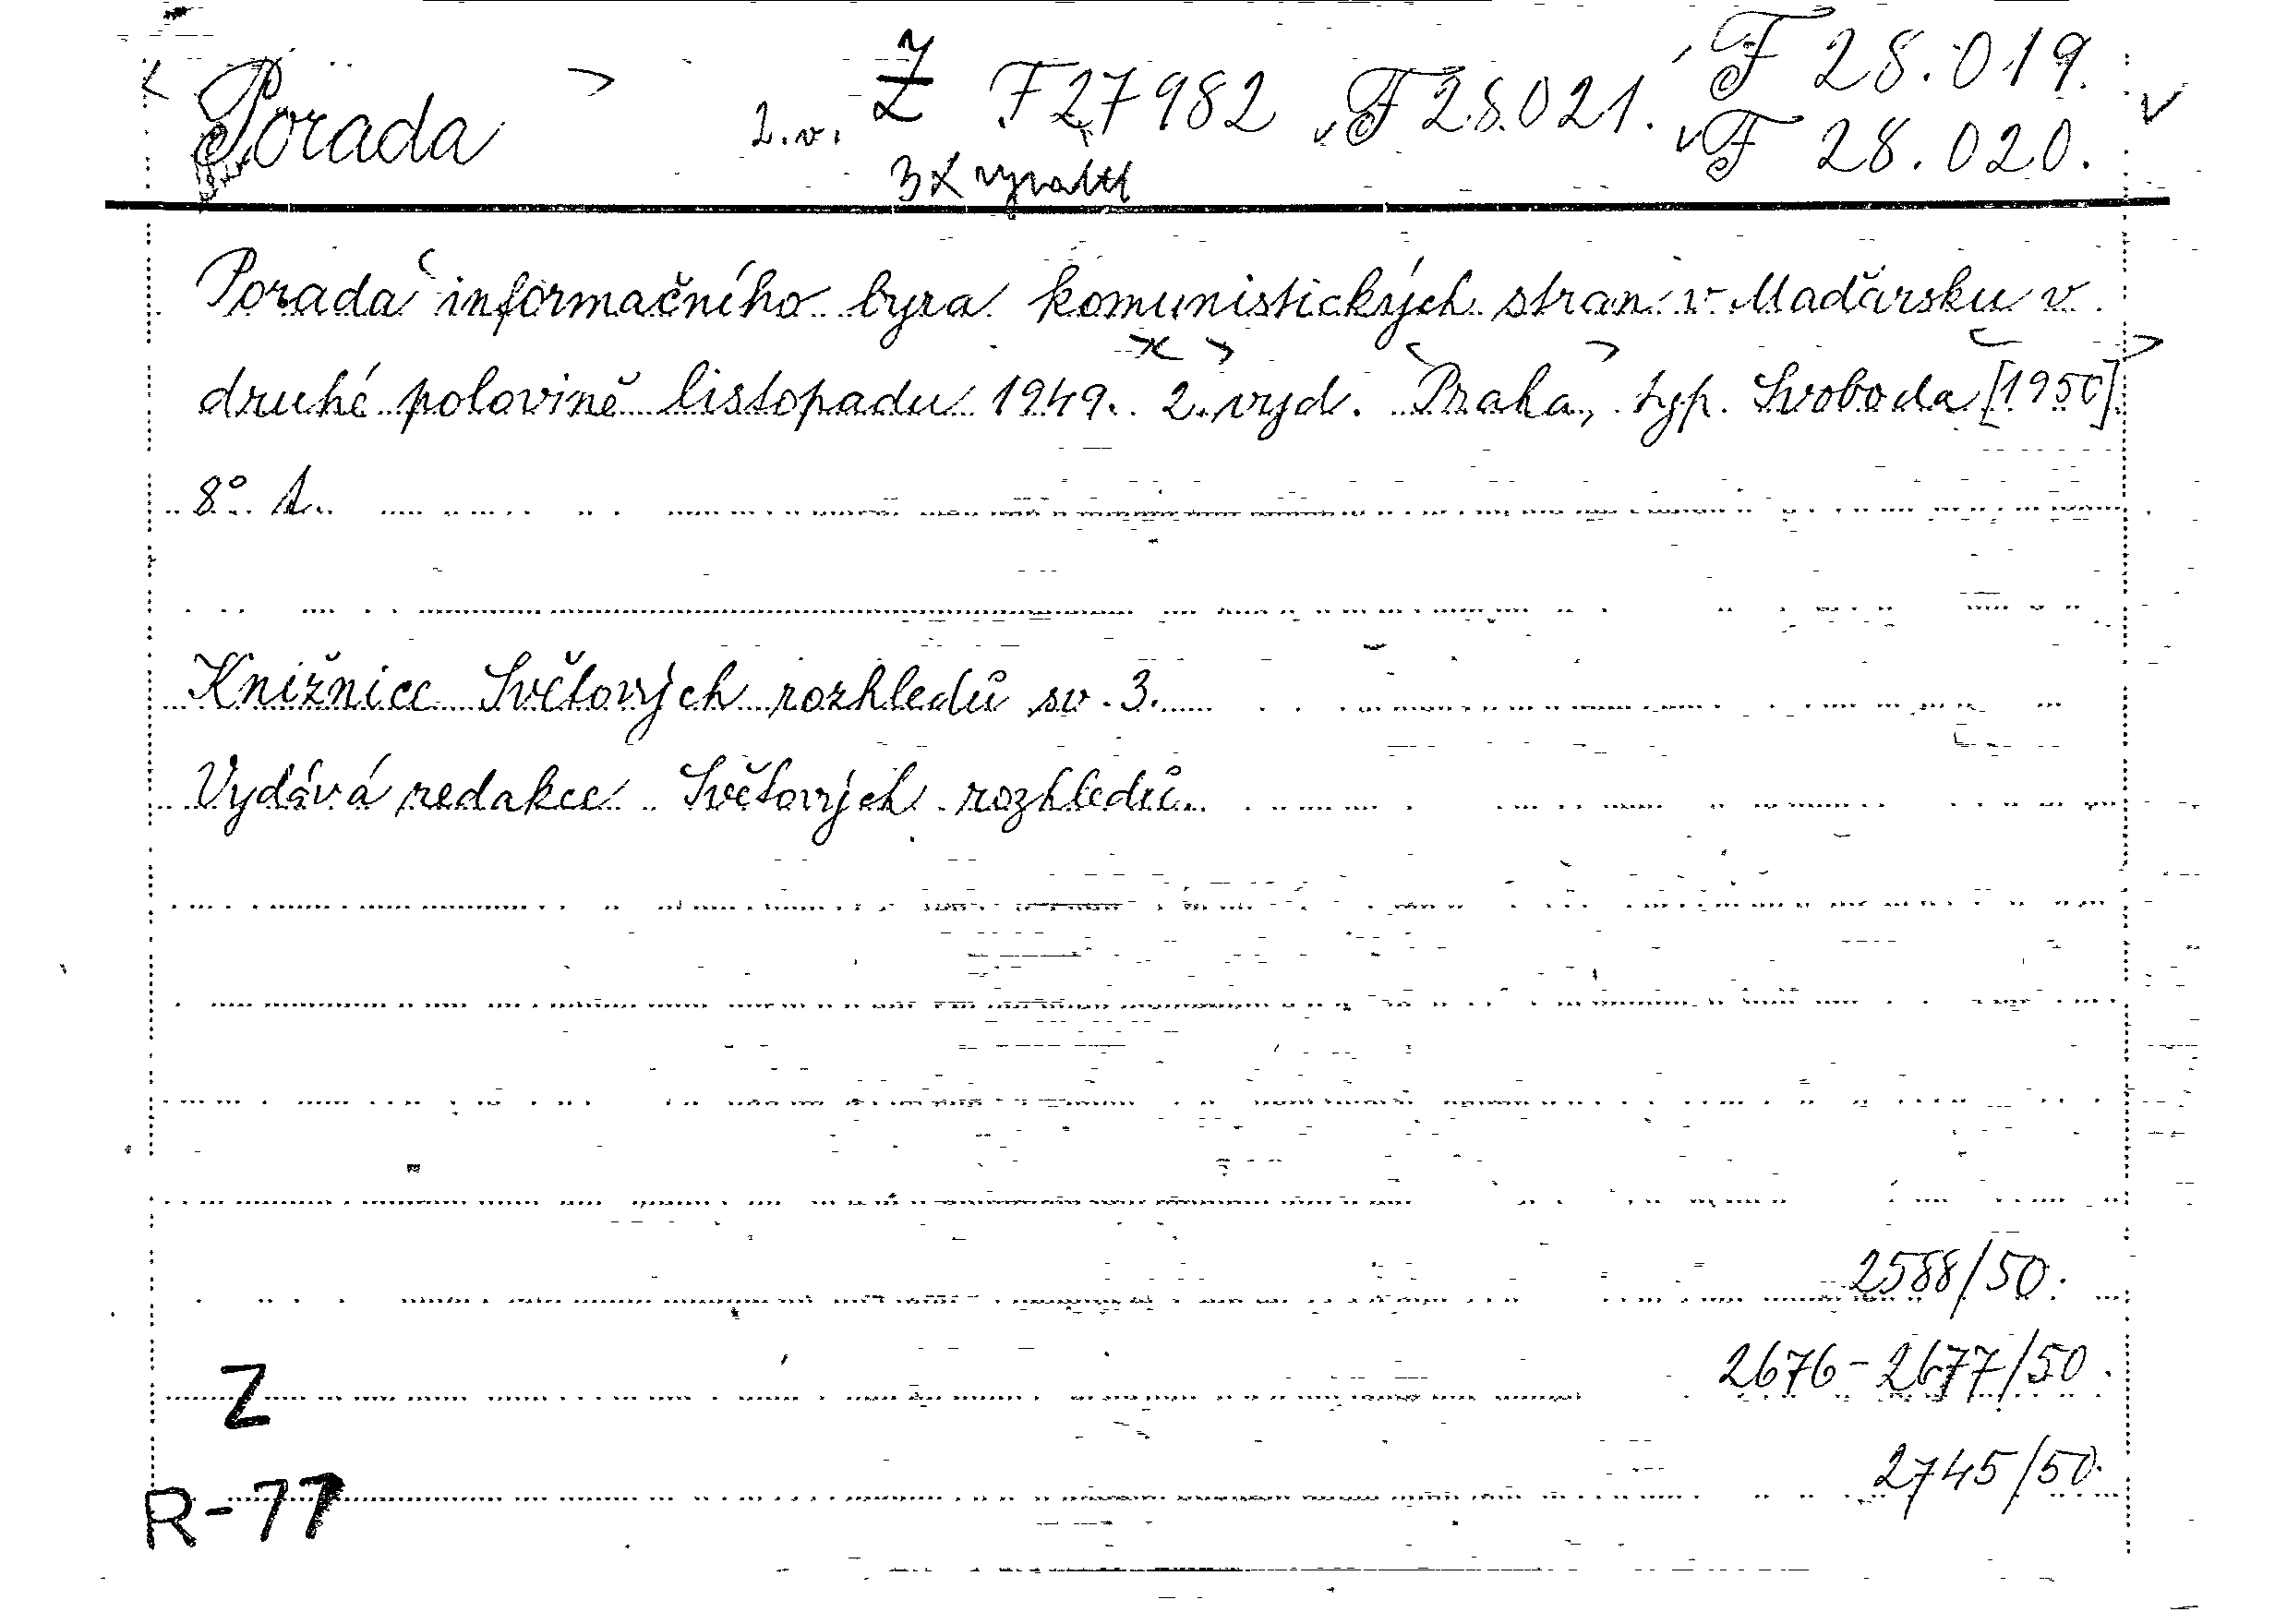 Porada 2.v. Z F 27982 F 28.021. F 28.019.
F 28.020.
3x
Porada informačního byra komunistických stran v Maďarsku v
druhé polovině listopadu 1949. 2. vyd. Praha, typ. Svoboda [1950]
8°. 1.
Knižnice Světových rozhledů sv. 3.
Vydává redakce Světových rozhledů.
2588/50.
Z 2676-2677/50.
2745/50.
R-77